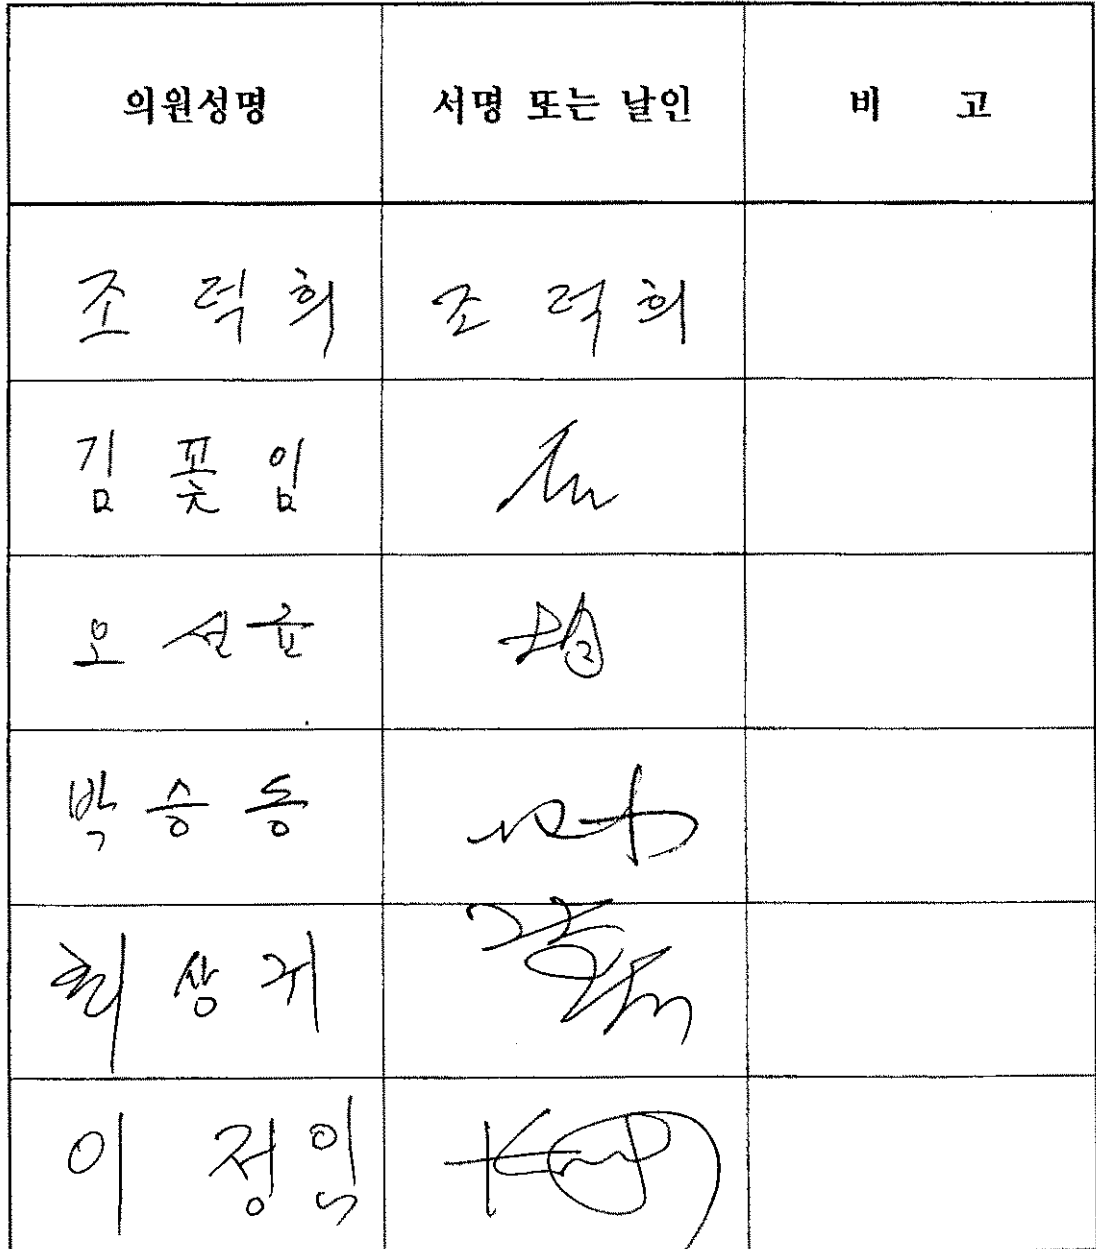 의원성명 서명 또는 날인 비 고
조 덕 희 조 덕 희
김 꽃 임
오 선 균
박 승 동
최 상 귀
이 정 임